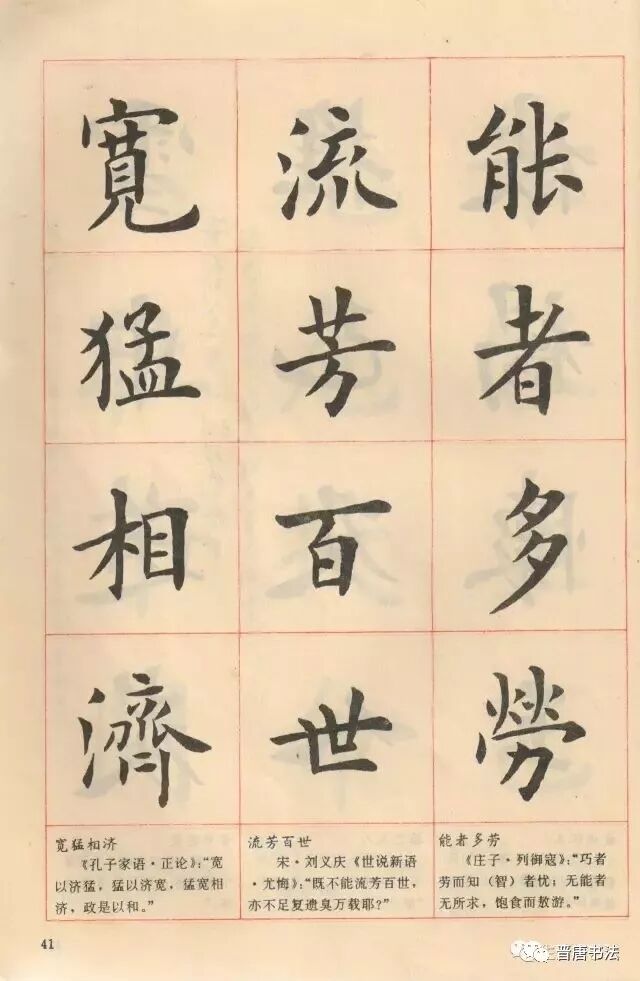 能者多勞
流芳百世
寬猛相濟
能者多劳
《庄子·列御寇》：“巧者
劳而知（智）者忧；无能者
无所求，饱食而敖游。”
流芳百世
宋·刘义庆《世说新语
·尤悔》：“既不能流芳百世，
亦不足复遗臭万载耶？”
宽猛相济
《孔子家语·正论》：“宽
以济猛，猛以济宽，猛宽相
济，政是以和。”
41
晋唐书法